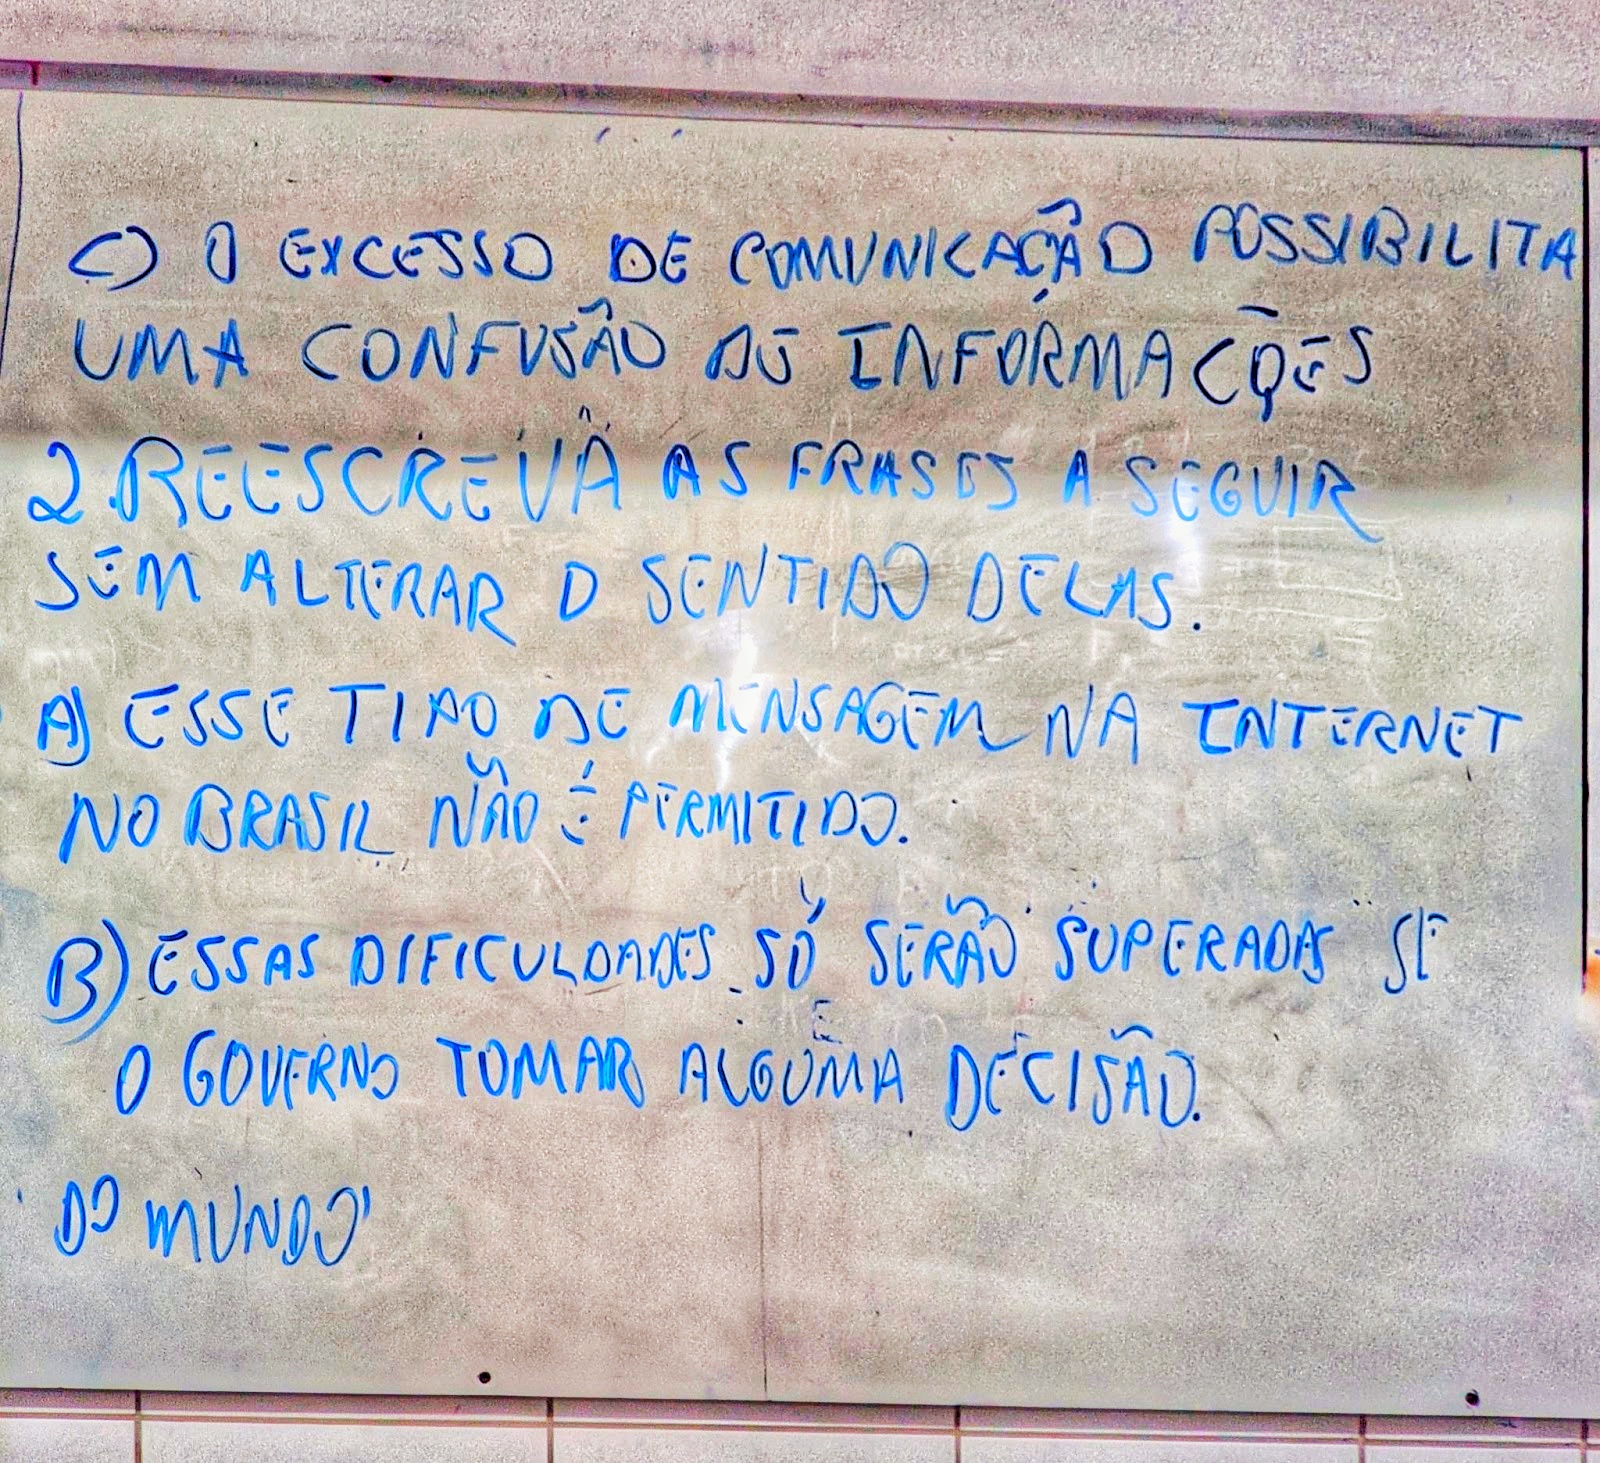 C) O EXCESSO DE COMUNICAÇÃO POSSIBILITA
UMA CONFUSÃO DE INFORMAÇÕES
2. REESCREVA AS FRASES A SEGUIR
SEM ALTERAR O SENTIDO DELAS.
A) ESSE TIPO DE MENSAGEM NA INTERNET
NO BRASIL NÃO É PERMITIDO.
B) ESSAS DIFICULDADES SÓ SERÃO SUPERADAS SE
O GOVERNO TOMAR ALGUMA DECISÃO.
DO MUNDO